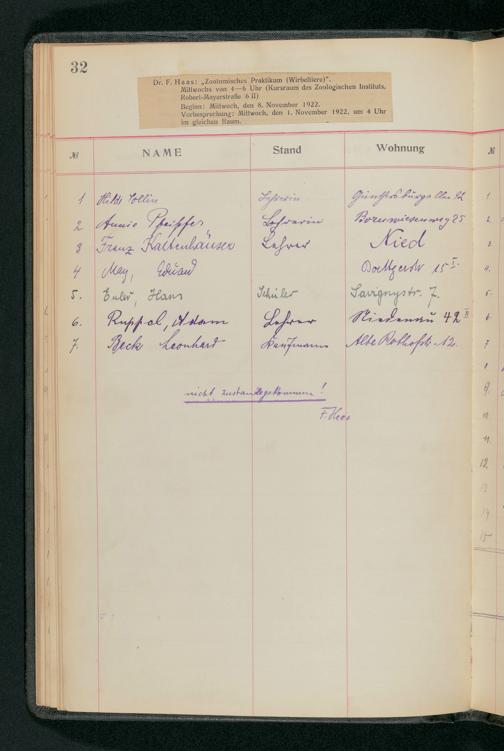 32
Dr. F. Haas: „Zootomisches Praktikum (Wirbeltiere)".
Mittwochs von 4—6 Uhr (Kursraum des Zoologischen Instituts,
Robert-Mayerstraße 6 II)
Beginn: Mittwoch, den 8. November 1922.
Vorbesprechung: Mittwoch, den 1. November 1922, um 4 Uhr
im gleichen Raum.
№ NAME Stand Wohnung №
1 Lehrerin Günthersburgallee
2 Annie Pfeiffer Lehrerin 25
3 Franz Kaltenhäuser Lehrer Nied
4 May, Eduard Boettgerstr 15 I.
5. Euler, Hans Schüler Savignystr. 7.
6. Ruppel, Adam Lehrer Niedenau 42 II
7. Beck Leonhard Kaufmann Alte Rothofstr. 12.
nicht zustandegekommen!
F. Haas